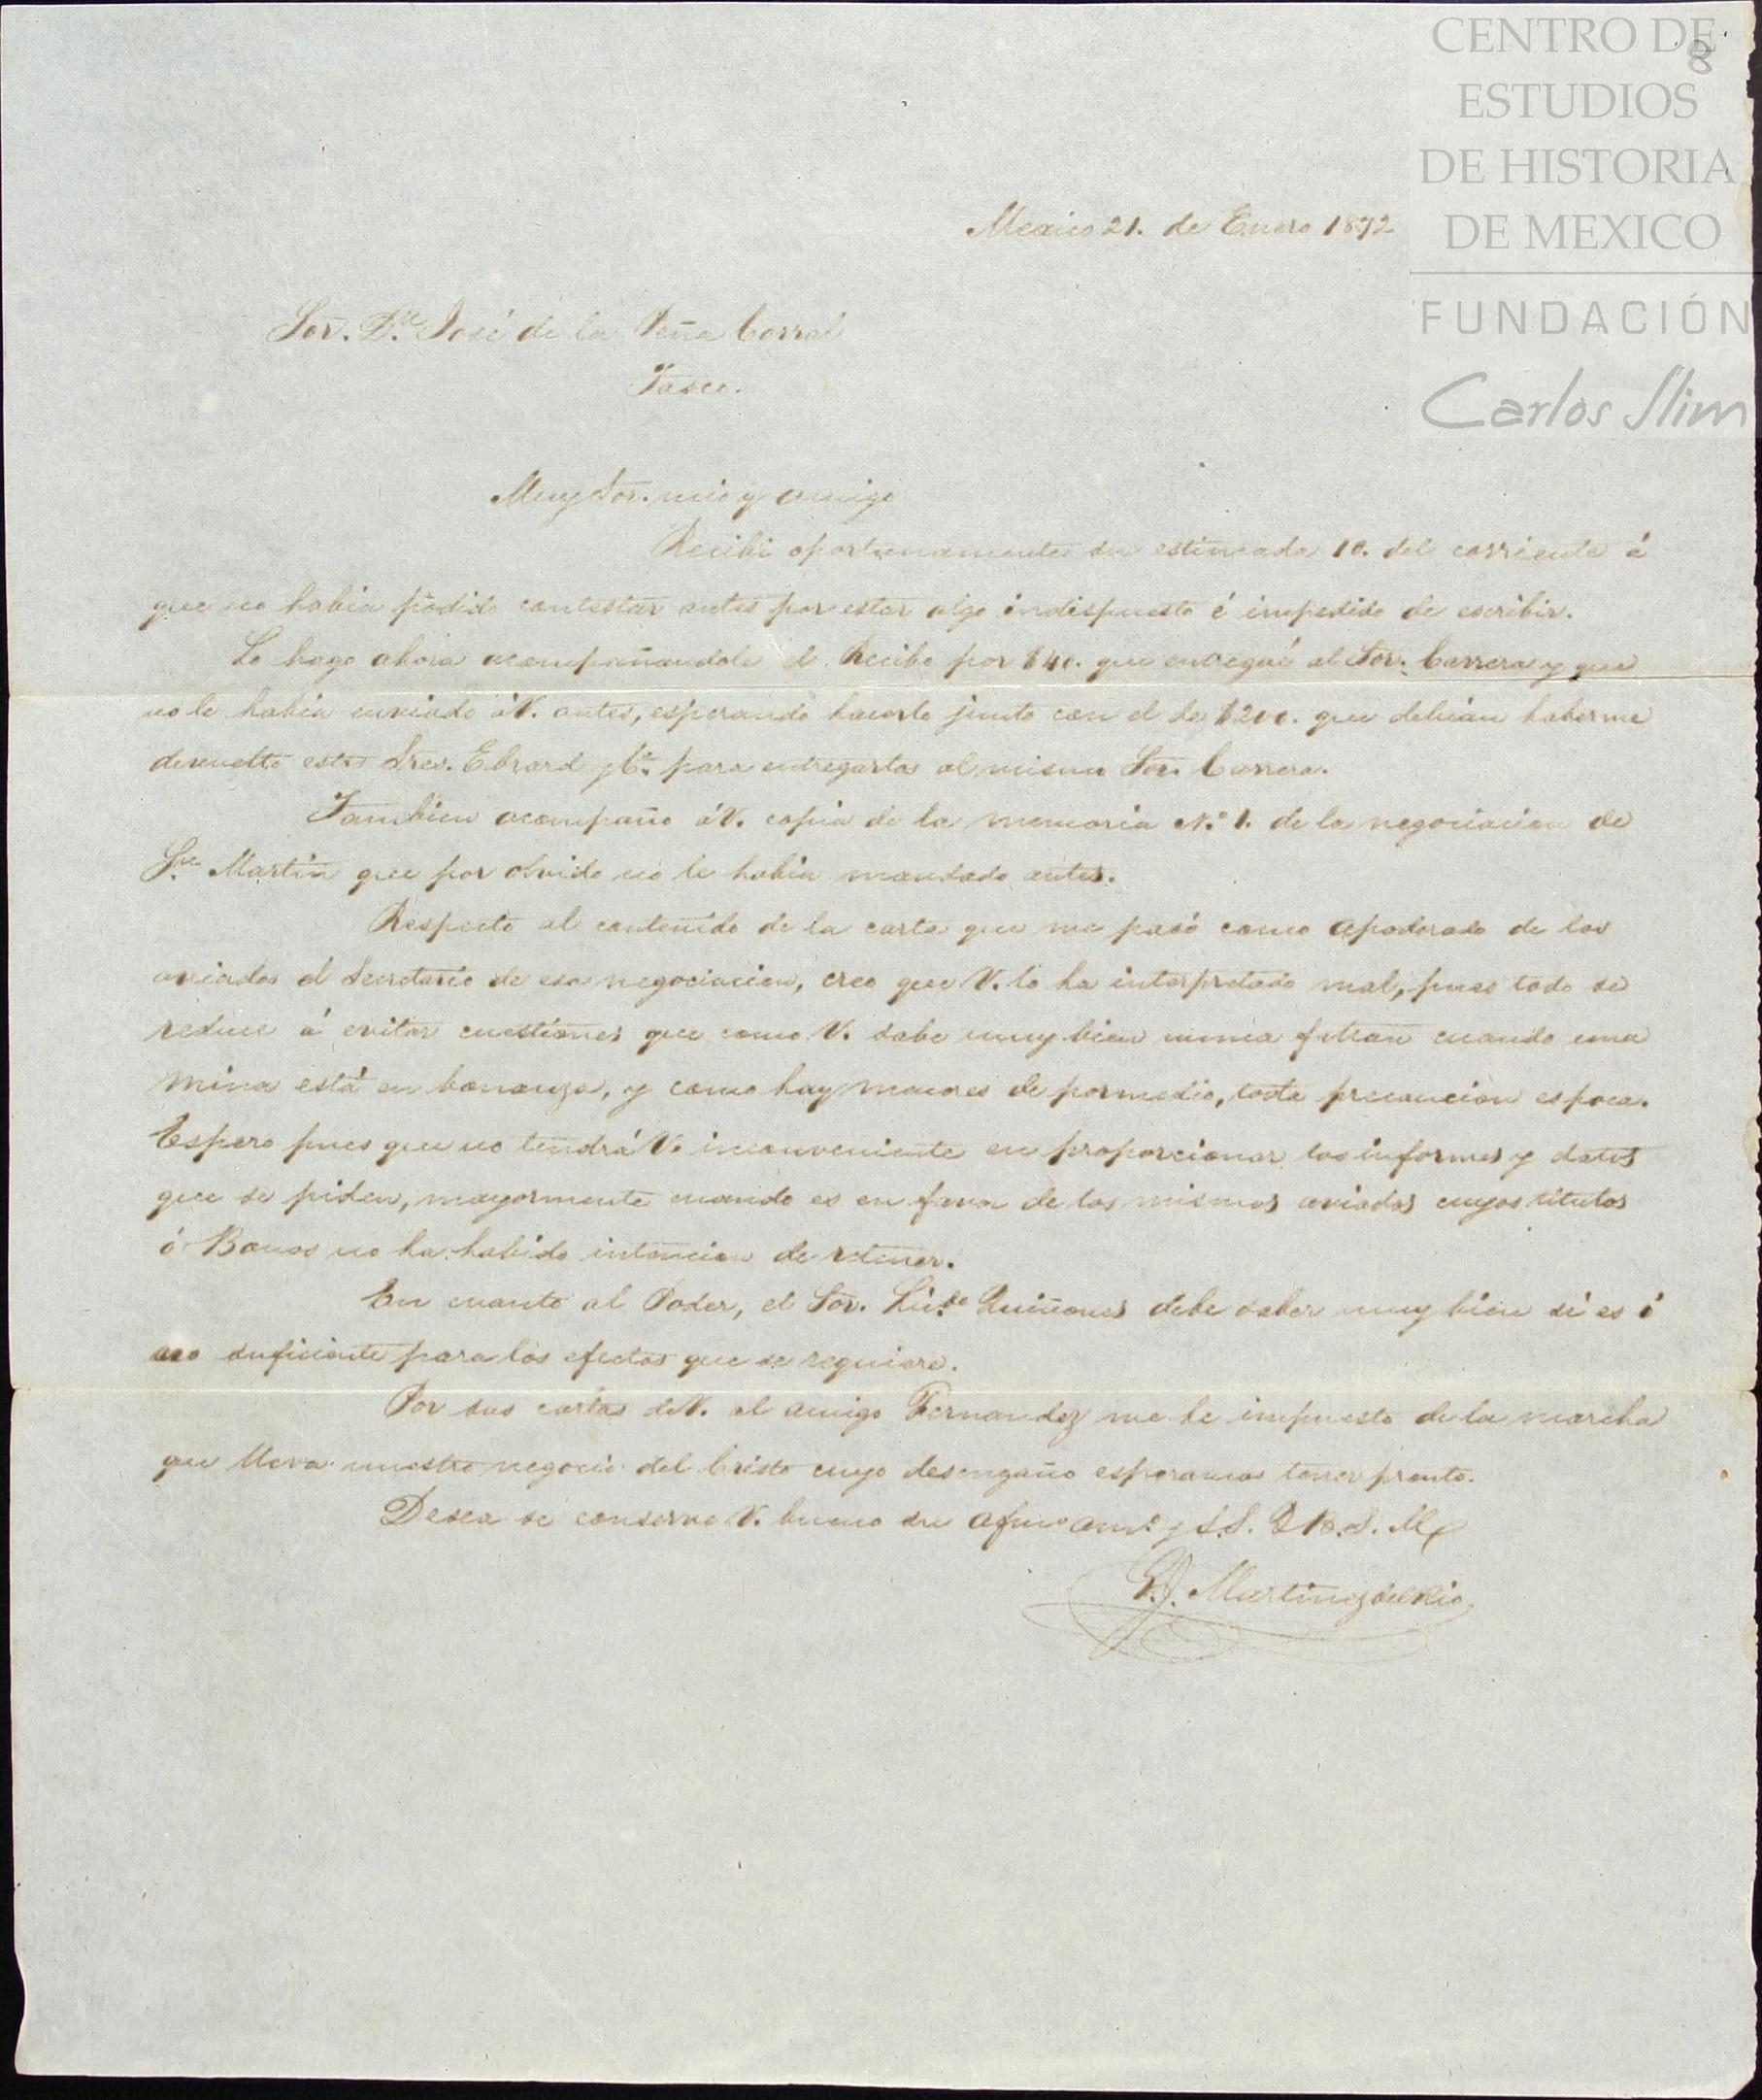 CENTRO DE
ESTUDIOS
DE HISTORIA
DE MEXICO
FUNDACIÓN
Carlos Slim
8
Mexico 21. de Enero 1872
Sor. Dn. José de la Peña Corral
Tasco.
Muy Sor. mio y amigo
Recibi oportunamente su estimada 10. del corriente á
que no habia podido contestar antes por estar algo indispuesto é impedido de escribir.
Lo hago ahora acompañandole el Recibo por $40. que entregué al Sor. Carrera y que
no le habia enviado á V. antes, esperando hacerlo junto con el de $200. que debian haberme
devuelto estos Sres. Ebrard y Ca. para entregarlos al mismo Sor. Carrera.
Tambien acompaño á V. copia de la memoria No. 1. de la negociacion de
Sn. Martin que por olvido no le habia mandado antes.
Respecto al contenido de la carta que me pasó como apoderado de los
aviados el Secretario de esa negociacion, creo que V. lo ha interpretado mal, pues todo se
reduce á evitar cuestiones que como V. sabe muy bien nunca faltan cuando una
mina está en bonanza, y como hay menores de pormedio, toda precaucion es poca.
Espero pues que no tendrá V. inconveniente en proporcionar los informes y datos
que se piden, mayormente cuando es en favor de los mismos aviados cuyos titulos
ó Bonos no ha habido intencion de retener.
En cuanto al Poder, el Sor. Licdo. Quiñones debe saber muy bien si es ó
no suficiente para los efectos que se requiere.
Por sus cartas de V. al amigo Fernandez me he impuesto de la marcha
que lleva nuestro negocio del Cristo cuyo desengaño esperamos tener pronto.
Desea se conserve V. bueno su afmo amo. y S.S. Q B. S. M
Martinez del Rio